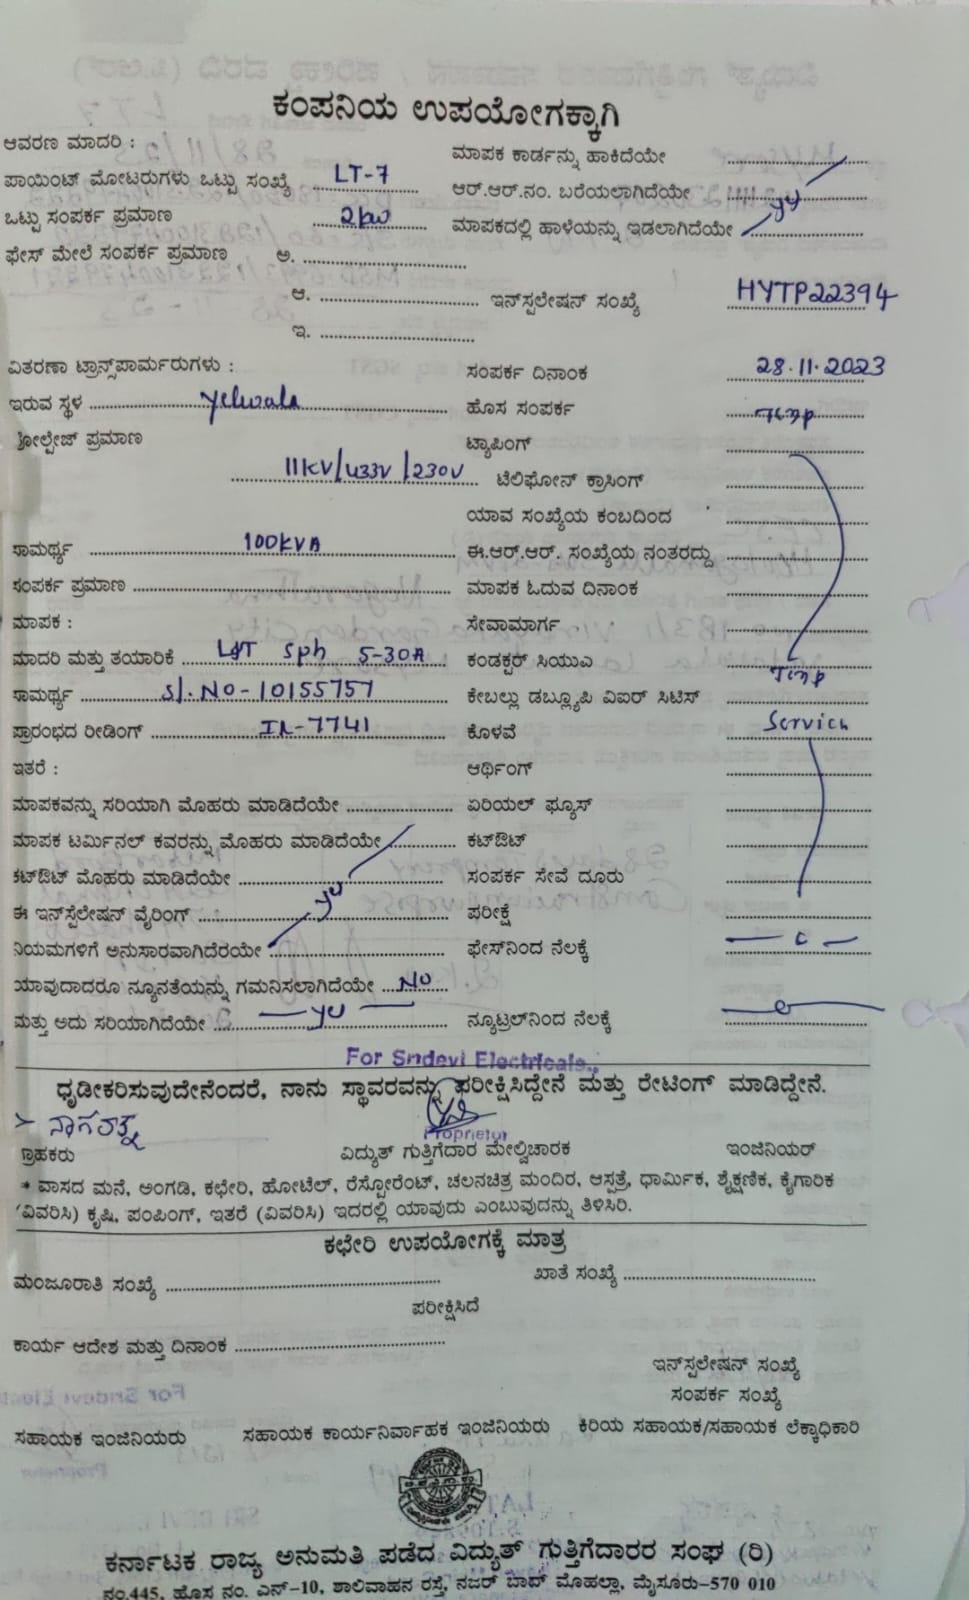 ಕಂಪನಿಯ ಉಪಯೋಗಕ್ಕಾಗಿ
ಆವರಣ ಮಾದರಿ : ಮಾಪಕ ಕಾರ್ಡನ್ನು ಹಾಕಿದೆಯೇ
ಪಾಯಿಂಟ್ ಮೋಟರುಗಳು ಒಟ್ಟು ಸಂಖ್ಯೆ LT-7 ಆರ್.ಆರ್.ನಂ. ಬರೆಯಲಾಗಿದೆಯೇ
ಒಟ್ಟು ಸಂಪರ್ಕ ಪ್ರಮಾಣ 2kw ಮಾಪಕದಲ್ಲಿ ಹಾಳೆಯನ್ನು ಇಡಲಾಗಿದೆಯೇ
ಫೇಸ್ ಮೇಲೆ ಸಂಪರ್ಕ ಪ್ರಮಾಣ ಅ.
ಆ. ಇನ್‌ಸ್ಟಲೇಷನ್ ಸಂಖ್ಯೆ HYTP22394
ಇ.
ವಿತರಣಾ ಟ್ರಾನ್ಸ್‌ಪಾರ್ಮರುಗಳು : ಸಂಪರ್ಕ ದಿನಾಂಕ 28.11.2023
ಇರುವ ಸ್ಥಳ Yelwala ಹೊಸ ಸಂಪರ್ಕ Temp
ವೋಲ್ಟೇಜ್ ಪ್ರಮಾಣ ಟ್ಯಾಪಿಂಗ್
11KV/433V/230V ಟೆಲಿಫೋನ್ ಕ್ರಾಸಿಂಗ್
ಯಾವ ಸಂಖ್ಯೆಯ ಕಂಬದಿಂದ
ಸಾಮರ್ಥ್ಯ 100KVA ಈ.ಆರ್.ಆರ್. ಸಂಖ್ಯೆಯ ನಂತರದ್ದು
ಸಂಪರ್ಕ ಪ್ರಮಾಣ ಮಾಪಕ ಓದುವ ದಿನಾಂಕ
ಮಾಪಕ : ಸೇವಾಮಾರ್ಗ
ಮಾದರಿ ಮತ್ತು ತಯಾರಿಕೆ L&T Sph 5-30A ಕಂಡಕ್ಟರ್ ಸಿಯುಎ Temp
ಸಾಮರ್ಥ್ಯ Sl.NO-10155757 ಕೇಬಲ್ಲು ಡಬ್ಲ್ಯೂಪಿ ವಿಐರ್ ಸಿಟಿಸ್
ಪ್ರಾರಂಭದ ರೀಡಿಂಗ್ IR-7741 ಕೊಳವೆ Service
ಇತರೆ : ಆರ್ಥಿಂಗ್
ಮಾಪಕವನ್ನು ಸರಿಯಾಗಿ ಮೊಹರು ಮಾಡಿದೆಯೇ ಏರಿಯಲ್ ಫ್ಯೂಸ್
ಮಾಪಕ ಟರ್ಮಿನಲ್ ಕವರನ್ನು ಮೊಹರು ಮಾಡಿದೆಯೇ ಕಟ್‌ಔಟ್
ಕಟ್‌ಔಟ್ ಮೊಹರು ಮಾಡಿದೆಯೇ ಸಂಪರ್ಕ ಸೇವೆ ದೂರು
ಈ ಇನ್‌ಸ್ಪೆಲೇಷನ್ ವೈರಿಂಗ್ ಪರೀಕ್ಷೆ
ನಿಯಮಗಳಿಗೆ ಅನುಸಾರವಾಗಿದೆರಯೇ ಫೇಸ್‌ನಿಂದ ನೆಲಕ್ಕೆ
ಯಾವುದಾದರೂ ನ್ಯೂನತೆಯನ್ನು ಗಮನಿಸಲಾಗಿದೆಯೇ NO
ಮತ್ತು ಅದು ಸರಿಯಾಗಿದೆಯೇ ನ್ಯೂಟ್ರಲ್‌ನಿಂದ ನೆಲಕ್ಕೆ
For Sridevi Electricals.,
ಧೃಡೀಕರಿಸುವುದೇನೆಂದರೆ, ನಾನು ಸ್ಥಾವರವನ್ನು ಪರೀಕ್ಷಿಸಿದ್ದೇನೆ ಮತ್ತು ರೇಟಿಂಗ್ ಮಾಡಿದ್ದೇನೆ.
ನಾಗರತ್ನ Proprietor
ಗ್ರಾಹಕರು ವಿದ್ಯುತ್ ಗುತ್ತಿಗೆದಾರ ಮೇಲ್ವಿಚಾರಕ ಇಂಜಿನಿಯರ್
* ವಾಸದ ಮನೆ, ಅಂಗಡಿ, ಕಛೇರಿ, ಹೋಟೆಲ್, ರೆಸ್ಟೋರೆಂಟ್, ಚಲನಚಿತ್ರ ಮಂದಿರ, ಆಸ್ಪತ್ರೆ, ಧಾರ್ಮಿಕ, ಶೈಕ್ಷಣಿಕ, ಕೈಗಾರಿಕ
(ವಿವರಿಸಿ) ಕೃಷಿ, ಪಂಪಿಂಗ್, ಇತರೆ (ವಿವರಿಸಿ) ಇದರಲ್ಲಿ ಯಾವುದು ಎಂಬುವುದನ್ನು ತಿಳಿಸಿರಿ.
ಕಛೇರಿ ಉಪಯೋಗಕ್ಕೆ ಮಾತ್ರ
ಮಂಜೂರಾತಿ ಸಂಖ್ಯೆ ಖಾತೆ ಸಂಖ್ಯೆ
ಪರೀಕ್ಷಿಸಿದೆ
ಕಾರ್ಯ ಆದೇಶ ಮತ್ತು ದಿನಾಂಕ
ಇನ್‌ಸ್ಪಲೇಷನ್ ಸಂಖ್ಯೆ
ಸಂಪರ್ಕ ಸಂಖ್ಯೆ
ಸಹಾಯಕ ಇಂಜಿನಿಯರು ಸಹಾಯಕ ಕಾರ್ಯನಿರ್ವಾಹಕ ಇಂಜಿನಿಯರು ಕಿರಿಯ ಸಹಾಯಕ/ಸಹಾಯಕ ಲೆಕ್ಕಾಧಿಕಾರಿ
ಕರ್ನಾಟಕ ರಾಜ್ಯ ಅನುಮತಿ ಪಡೆದ ವಿದ್ಯುತ್ ಗುತ್ತಿಗೆದಾರರ ಸಂಘ (ರಿ)
ನಂ.445, ಹೊಸ ನಂ. ಎನ್-10, ಶಾಲಿವಾಹನ ರಸ್ತೆ, ನಜರ್ ಬಾದ್ ಮೊಹಲ್ಲಾ, ಮೈಸೂರು-570 010